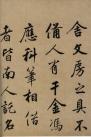 舍文房之具不
人有千金馮
應科筆相借
者皆南人記名